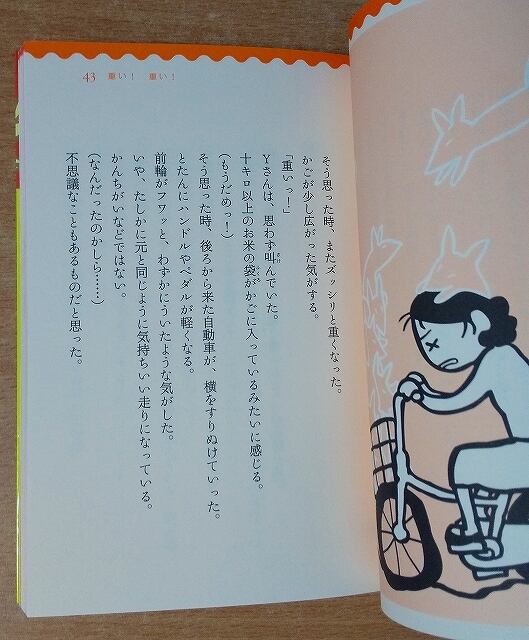 43 重い！ 重い！
そう思った時、またズッシリと重くなった。
かごが少し広がった気がする。
「重いっ！」
Yさんは、思わず叫んでいた。
十キロ以上のお米の袋がかごに入っているみたいに感じる。
（もうだめっ！）
そう思った時、後ろから来た自動車が、横をすりぬけていった。
とたんにハンドルやペダルが軽くなる。
前輪がフワッと、わずかにういたような気がした。
いや、たしかに元と同じように気持ちいい走りになっている。
かんちがいなどではない。
（なんだったのかしら……）
不思議なこともあるものだと思った。